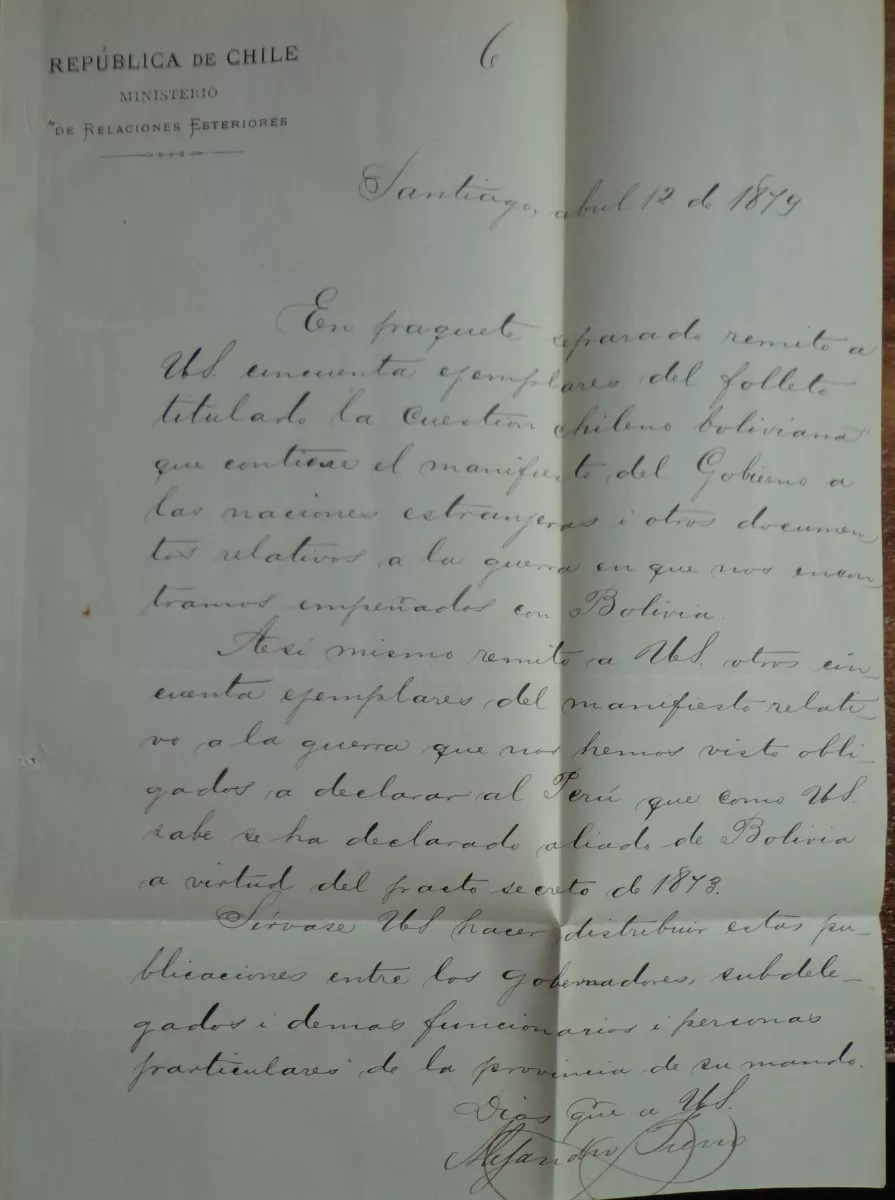 REPÚBLICA DE CHILE
MINISTERIO
DE RELACIONES ESTERIORES
6
Santiago, abril 12 de 1879
En paquete separado remito a
US. cincuenta ejemplares del folleto
titulado la cuestion chileno boliviana
que contiene el manifiesto del Gobierno a
las naciones estranjeras i otros documen
tos relativos a la guerra en que nos encon
tramos empeñados con Bolivia.
Asi mismo remito a US. otros cin_
cuenta ejemplares del manifiesto relati_
vo a la guerra que nos hemos visto obli_
gados a declarar al Perú que como US.
sabe se ha declarado aliado de Bolivia
a virtud del pacto secreto de 1873.
Sírvase US. hacer distribuir estas pu_
blicaciones entre los gobernadores, subdele_
gados i demas funcionarios i personas
particulares de la provincia de su mando.
Dios gue a US.
Alejandro Fierro